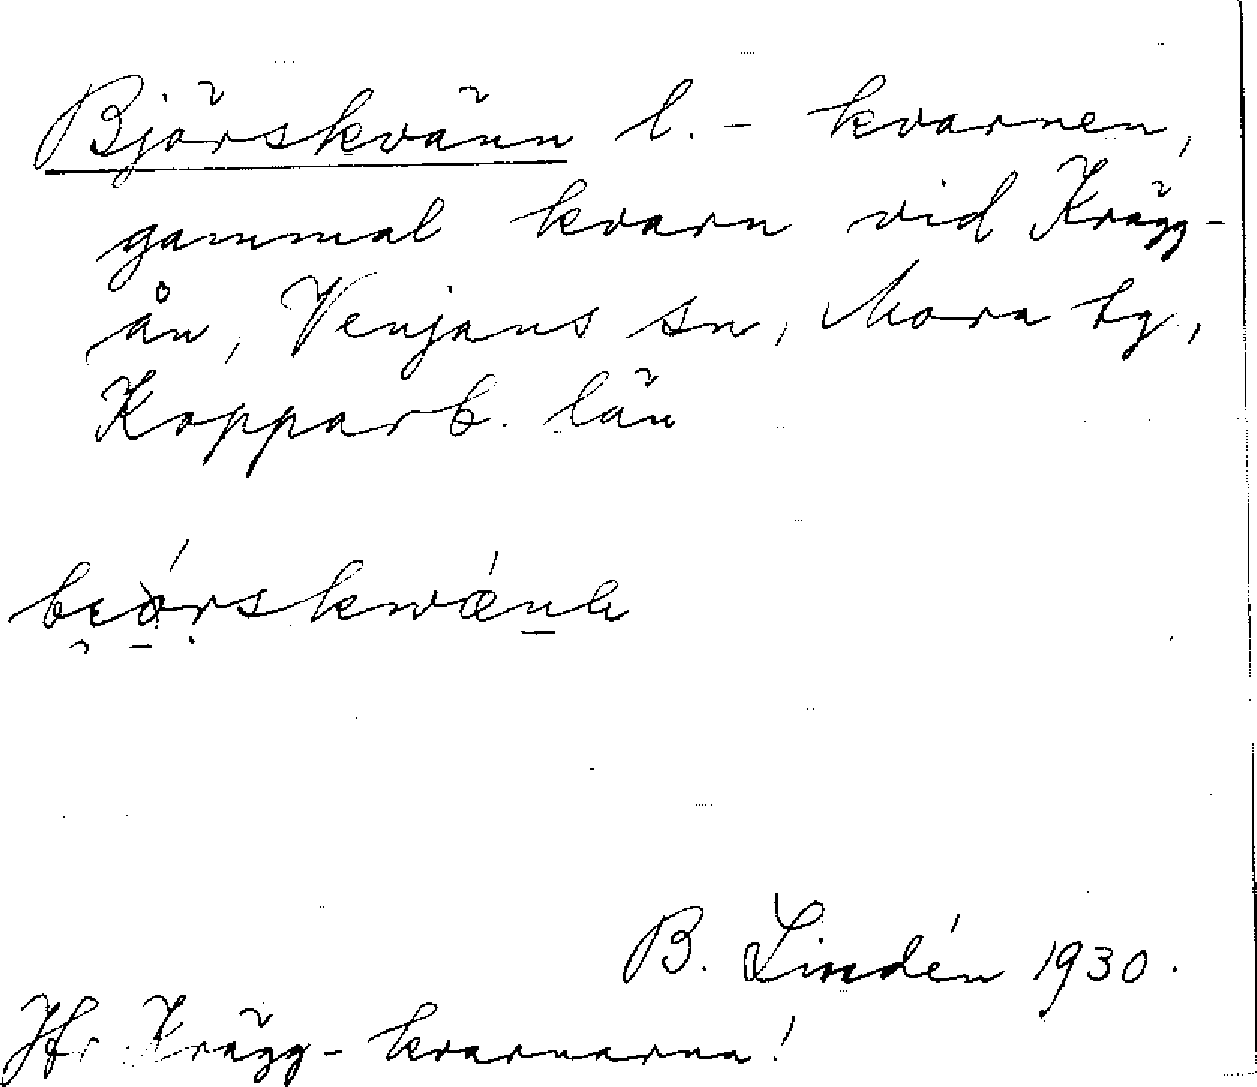 Björskvänn l. - kvarnen,
gammal kvarn vid Krägg-
ån, Venjans sn, Mora tg.,
Kopparb. län
B. Lindén 1930.
Jfr Krägg-kvarnarna!